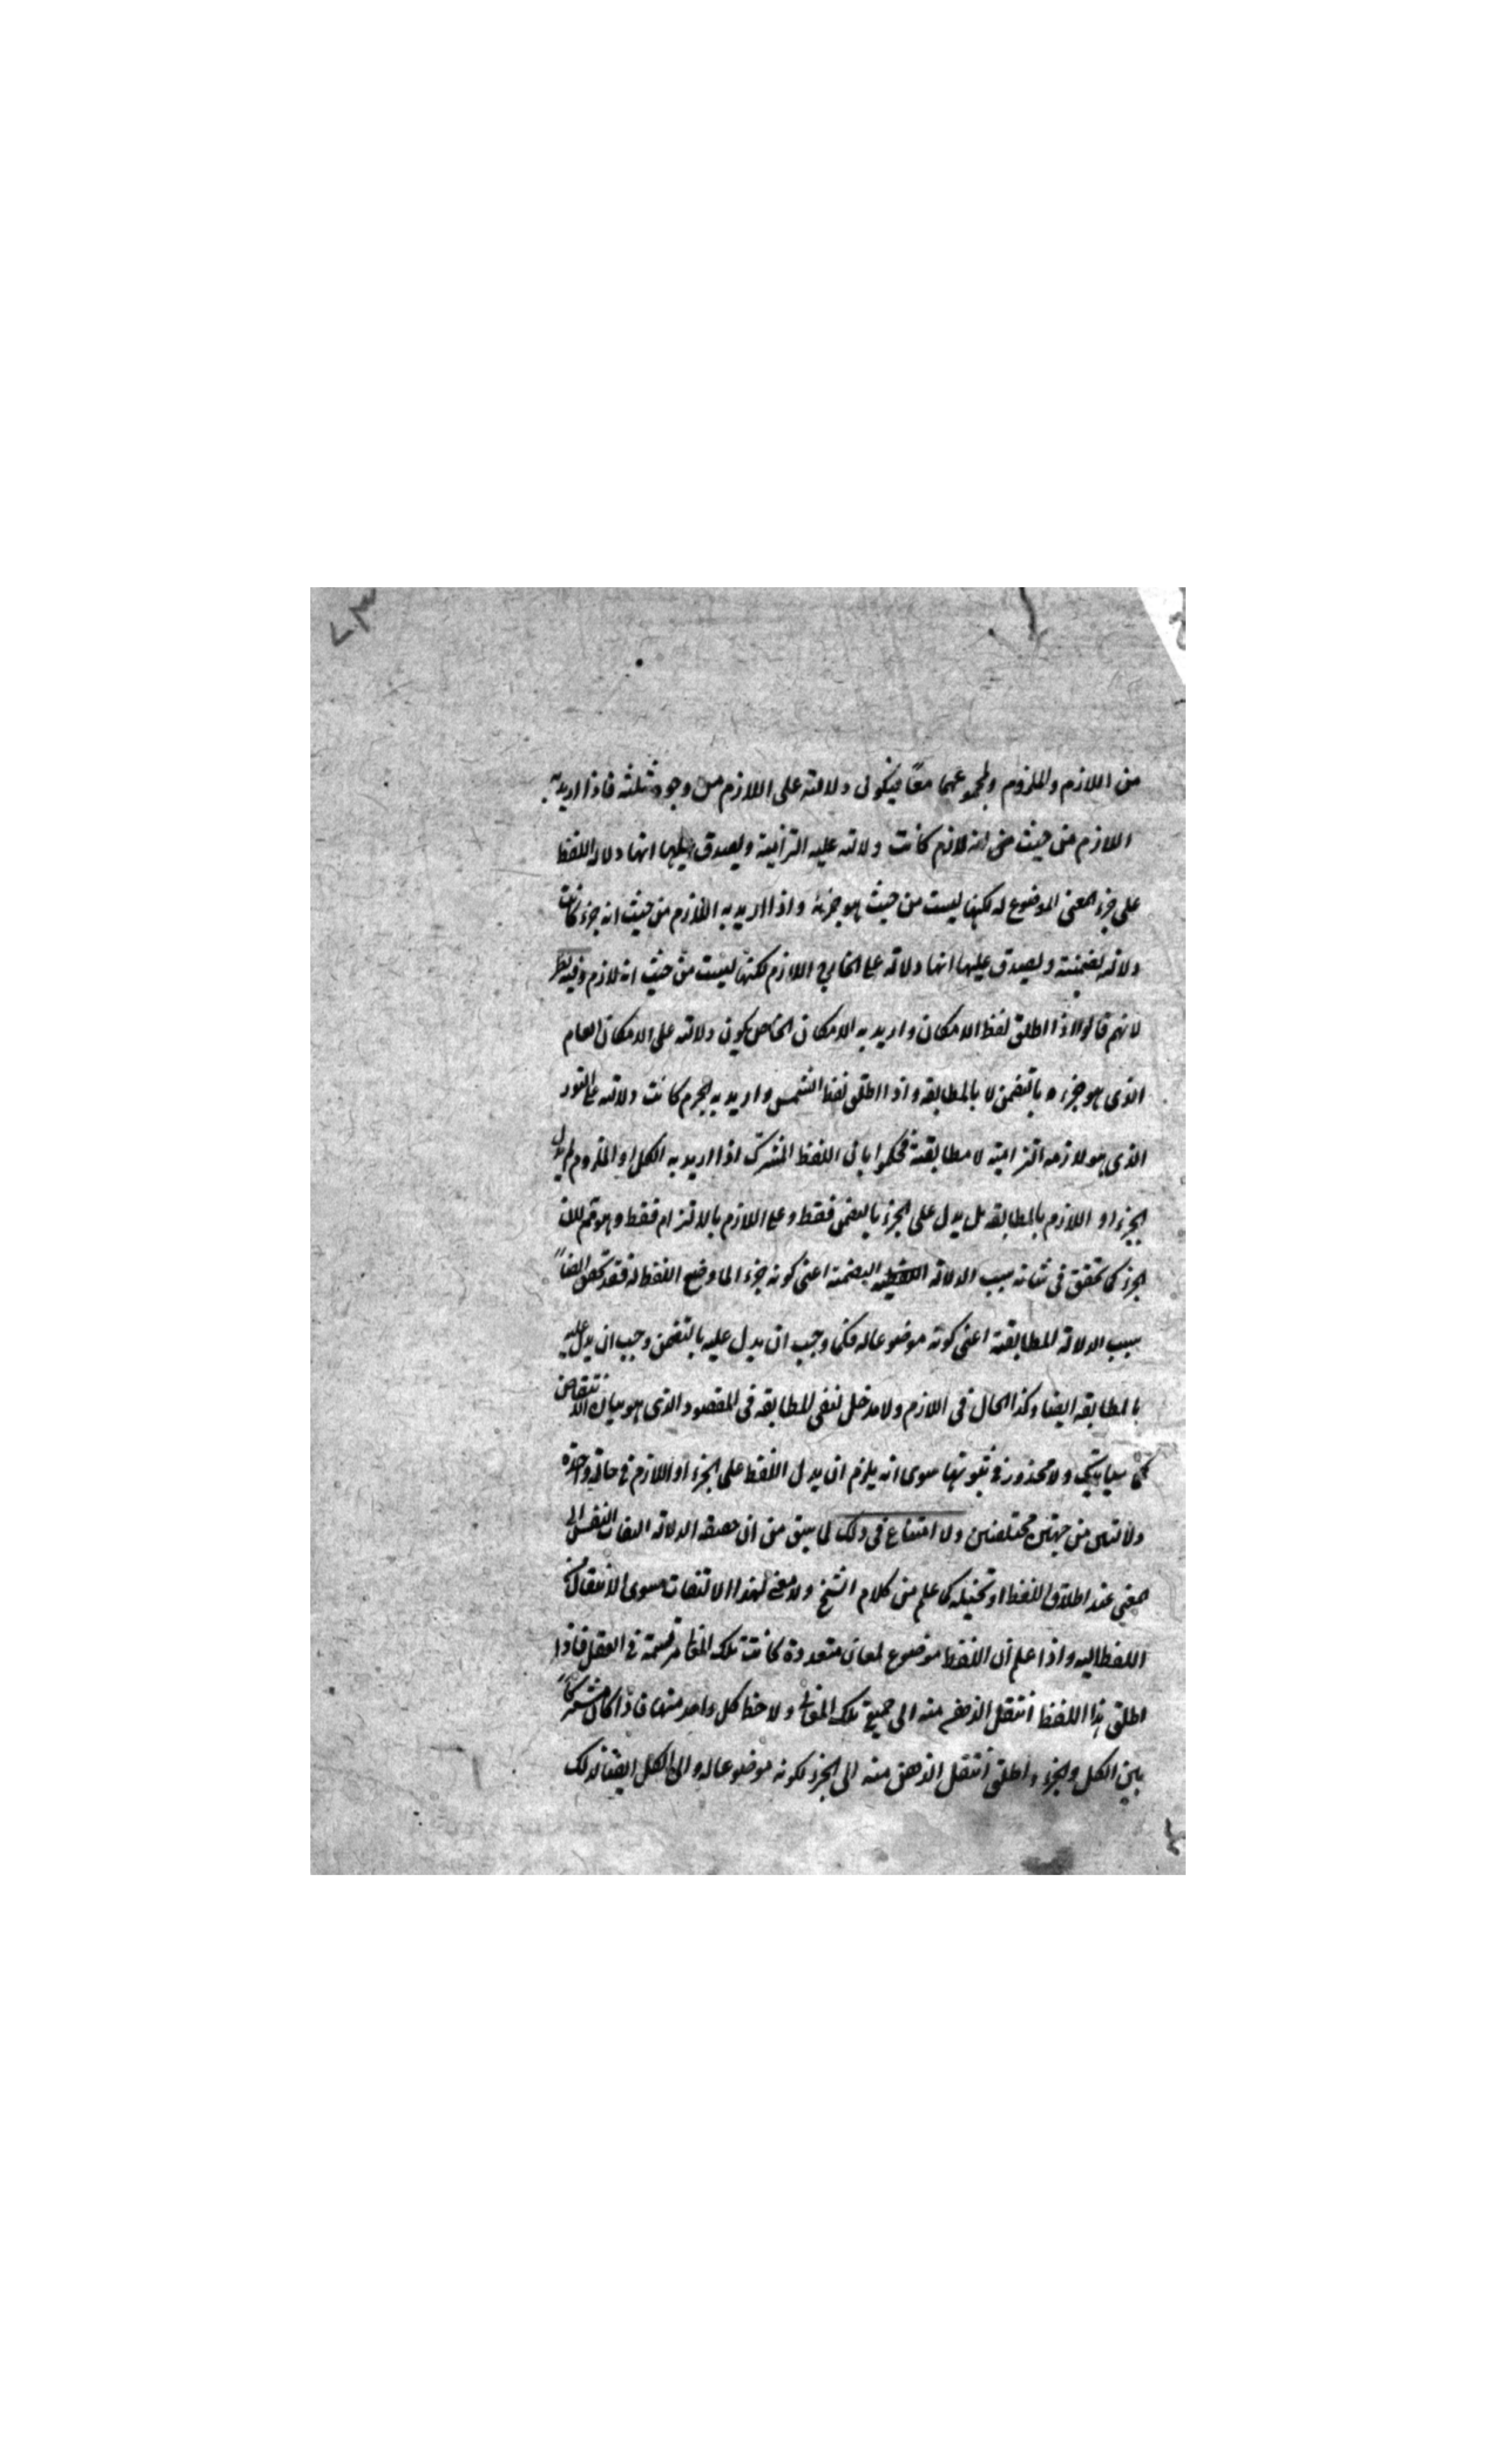 من اللازم والملزوم ولمجموعهما معًا فيكون دلالته على اللازم من وجوه ثلثة فاذا اريد به
اللازم من حيث انه لازم كانت دلالته عليه التزامية ويصدق عليها انها دلالة اللفظ
على جزء المعنى الموضوع له لكنها ليست من حيث هو جزءه واذا اريد به اللازم من حيث انه جزء كانت
دلالته تضمنية ويصدق عليها انها دلالة على الخارج اللازم لكنها ليست من حيث انه لازم وفيه نظر
لانهم قالوا اذا اطلق لفظ الامكان واريد به الامكان الخاص يكون دلالته على الامكان العام
الذى هو جزءه بالتضمن لا بالمطابقه واذا اطلق لفظ الشمس واريد به الجرم كانت دلالته على النور
الذى هو لازمه التزامية لا مطابقية فحكموا بان اللفظ المشترك اذا اريد به الكل او الملزوم لم يدل
الجزء او اللازم بالمطابقه بل يدل على الجزء بالتضمن فقط وعلى اللازم بالالتزام فقط وهو لان
الجزء كما تحقق فى شانه سبب الدلالة التضمنية اعنى كونه جزءا لما وضع اللفظ له فقد تحقق ايضاً
سبب الدلالة المطابقية اعنى كونه موضوعا له فكما وجب ان يدل عليه بالتضمن وجب ان يدل عليه
بالمطابقه ايضا وكذا الحال فى اللازم ولا مدخل لنفى المطابقه فى المقصود الذى هو بيان الانتقاض
كما سياتيك ولا محذور فى ثبوتها سوى انه يلزم ان يدل اللفظ على الجزء او اللازم فى حالة واحدة
دلالتين من جهتين مختلفتين ولا امتناع فى ذلك لما سبق من ان حقيقة الدلالة التفات النفس الى
معنى عند اطلاق اللفظ او تخيله كما علم من كلام الشيخ ولا معنى لهذا الالتفات سوى الانتقال من
اللفظ اليه واذا علم ان اللفظ موضوع لمعان متعددة كانت تلك المعانى مرتسمة فى العقل فاذا
اطلق هذا اللفظ انتقل الذهن منه الى جميع تلك المعانى ولاحظ كل واحد منها فاذا كان مشتركاً
بين الكل والجزء واطلق انتقل الذهن منه الى الجزء لكونه موضوعا له والى الكل ايضا لذلك